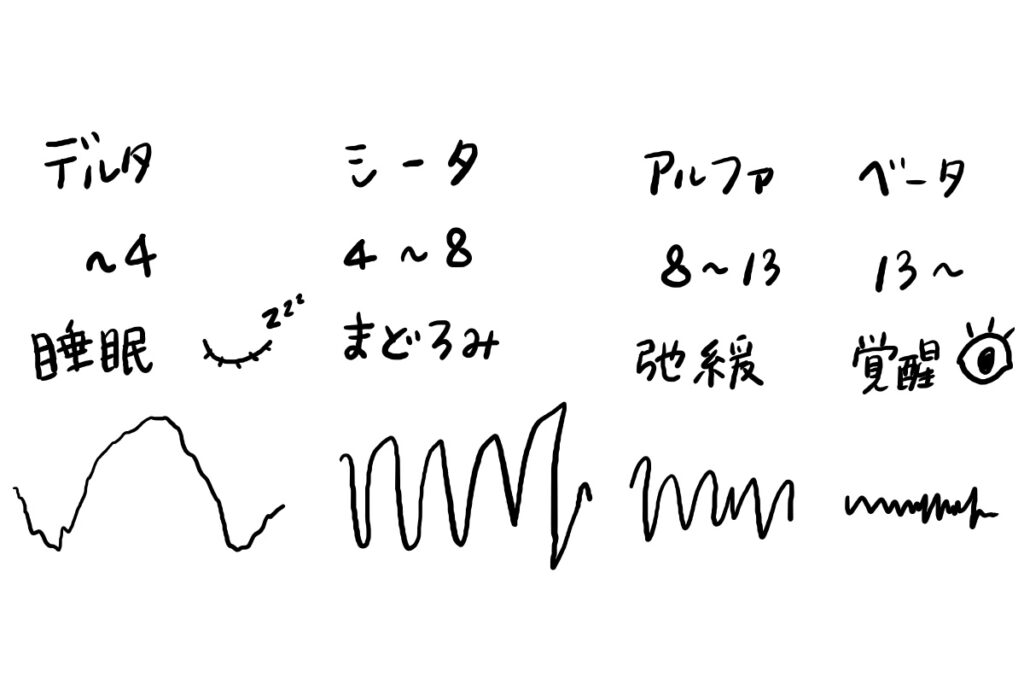 デルタ
~4
睡眠 zzz
シータ
4~8
まどろみ
アルファ
8~13
弛緩
ベータ
13~
覚醒